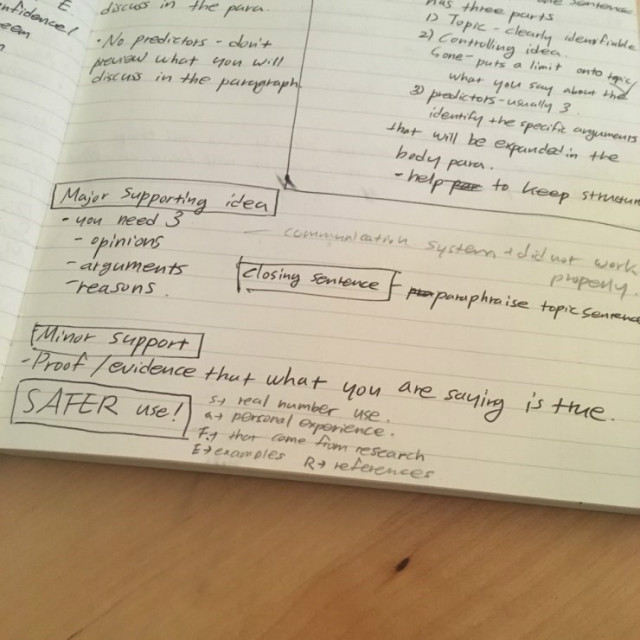 E.
confidence!
discuss in the para.
- No predictors - don't
preview what you will
discuss in the paragraph
has three parts
1) Topic - clearly identifiable
2) Controlling idea
- puts a limit onto topic
what you say about the
3) predictors - usually 3
identify the specific arguments
that will be expanded in the
body para.
- help to keep
Major supporting idea
- you need 3
- opinions
- arguments
- reasons.
- communication system + did not work
properly.
closing sentence - paraphraise topic sentence
Minor support
- Proof / evidence that what you are saying is true.
SAFER use!
S→ real number use.
a→ personal experience.
F→ that come from research
E→ examples R→ references